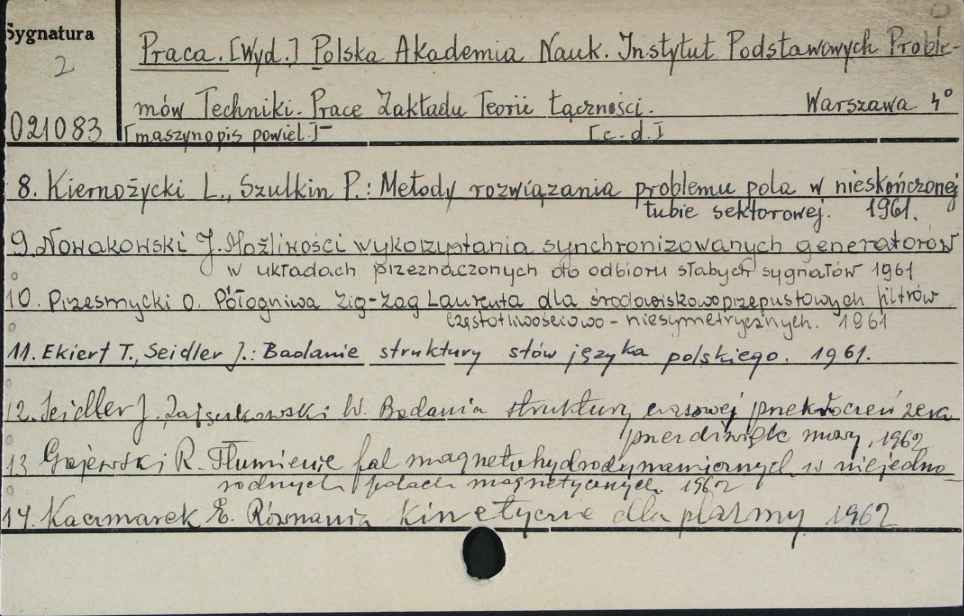 Sygnatura
2
021083
Praca. [Wyd.] Polska Akademia Nauk. Instytut Podstawowych Proble-
mów Techniki. Prace Zakładu Teorii Łączności. Warszawa 4°
[maszynopis powiel.] [c.d.]
8. Kiernożycki L., Szulkin P.: Metody rozwiązania problemu pola w nieskończonej
tubie sektorowej. 1961.
9. Nowakowski J. Możliwości wykorzystania synchronizowanych generatorów
w układach przeznaczonych do odbioru słabych sygnałów 1961
10. Przesmycki O. Półogniwa Zig-Zag Laurenta dla środowiskowoprzepustowych filtrów
częstotliwościowo-niesymetrycznych. 1961
11. Ekiert T., Seidler J.: Badanie struktury słów języka polskiego. 1961.
12. Seidler J. W. Badania struktury czasowej przekroczeń zera
przez dźwięki mowy, 1962
13 Gajewski R. Tłumienie fal magnetohydrodynamicznych w niejedno-
rodnych polach magnetycznych 1962
14. Kaczmarek E. Równania kinetyczne dla plazmy 1962